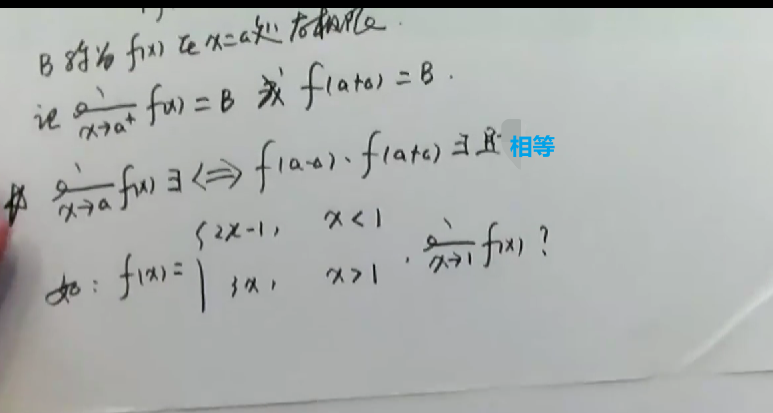 B 称为 f(x) 在 x=a 处右极限.
记 lim x→a⁺ f(x) = B 或 f(a+0) = B.
lim x→a f(x) ∃ ⟺ f(a-0)、f(a+0) ∃ 且 相等
如: f(x) = { 2x-1, x<1
3x, x>1 . lim x→1 f(x) ?